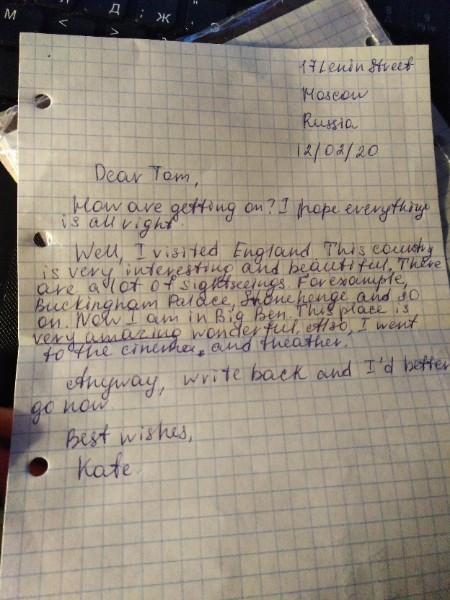 М Д Ж
< >
17 Lenin Street
Moscow
Russia
12/02/20
Dear Tom,
How are getting on? I hope everything
is all right.
Well, I visited England. This country
is very interesting and beautiful. There
are a lot of sightseeings. For example,
Buckingham Palace, Stonehenge and so
on. Now I am in Big Ben. This place is
very amazing wonderful. Also, I went
to the cinema and theather.
Anyway, write back and I'd better
go now
Best wishes,
Kate